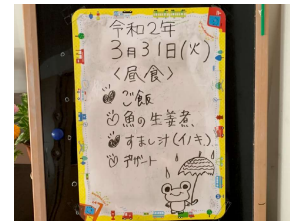 令和2年
3月31日(火)
〈昼食〉
ご飯
魚の生姜煮
すまし汁(イノキ)
デザート